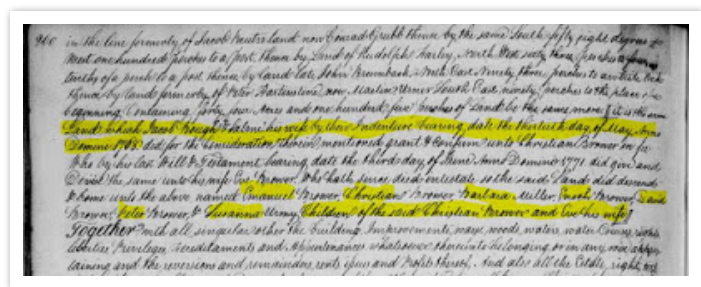 960 in the line formerly of Jacob land now Conrad Grubb thence by the same South fifty eight degrees
West one hundred perches to a post thence by Land of Rudolph Harley, North West sixty three perches
of a perch to a post thence by land late John Brumback North East Ninety three perches to a white Oak
thence by land formerly of Peter now Martin Urner South East ninety perches to the place of
beginning Containing forty four Acres and one hundred five perches of Land be the same more it is the same
Land which Jacob Hough & his wife by their Indenture bearing date the thirtieth day of May Anno
Domini did for the Consideration therein mentioned grant & Confirm unto Christian Brower in fee
Who by his last Will & Testament bearing date the third day of June Anno Domini 1771 did give and
Devise the same unto his wife Eve Brower, Who hath since died intestate so the said Lands did descend
& come unto the above named Emanuel Brower, Christian Brower Barbara Miller, Enoch Brower, David
Brower, Peter Brower, & Susanna Urmy Children of the said Christian Brower and Eve his wife
Together with all singular other the Building, Improvements, ways, woods, waters, water Courses, rights
liberties Privileges, Hereditaments and Appurtenances whatsoever thereunto belonging or in any wise apper
taining and the reversions and remainders, rents issues and Profits thereof, And also all the Estate, right,